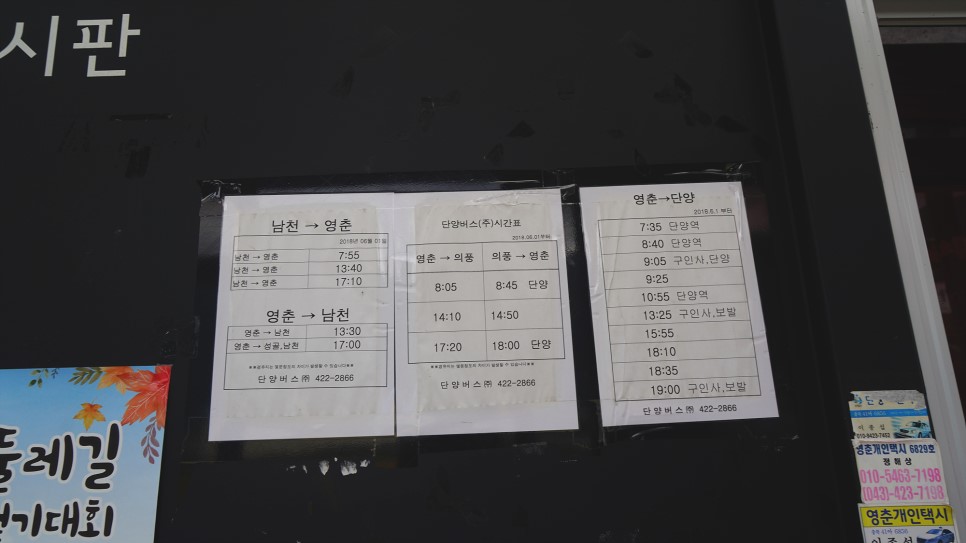 시판
남천 → 영춘
2018년 06월 01일
남천 → 영춘 7:55
남천 → 영춘 13:40
남천 → 영춘 17:10
영춘 → 남천
영춘 → 남천 13:30
영춘 → 성골,남천 17:00
단양버스㈜ 422-2866
단양버스(주)시간표
2018.06.01부터
영춘 → 의풍 의풍 → 영춘
8:05 8:45 단양
14:10 14:50
17:20 18:00 단양
단양버스㈜ 422-2866
영춘→단양
2018.6.1 부터
7:35 단양역
8:40 단양역
9:05 구인사,단양
9:25
10:55 단양역
13:25 구인사,보발
15:55
18:10
18:35
19:00 구인사,보발
단양버스㈜ 422-2866
둘레길
걷기대회
이종섭
010-9423-7452
영춘개인택시 6829호
010-5463-7198
(043)-423-7198
영춘개인택시
이종섭